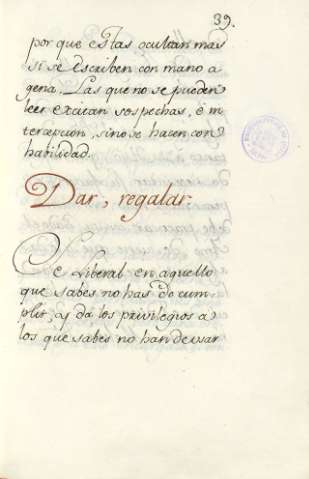 39.
por que estas ocultan mas
si se escriben con mano a
gena. Las que no se pueden
leer excitan sospechas, é in
tercepcion, sino se hacen con
habilidad.
Dar, regalar.
Se Liberal en aquello
que sabes no has do cum
plir; y da los privilegios a
los que sabes no han de usar